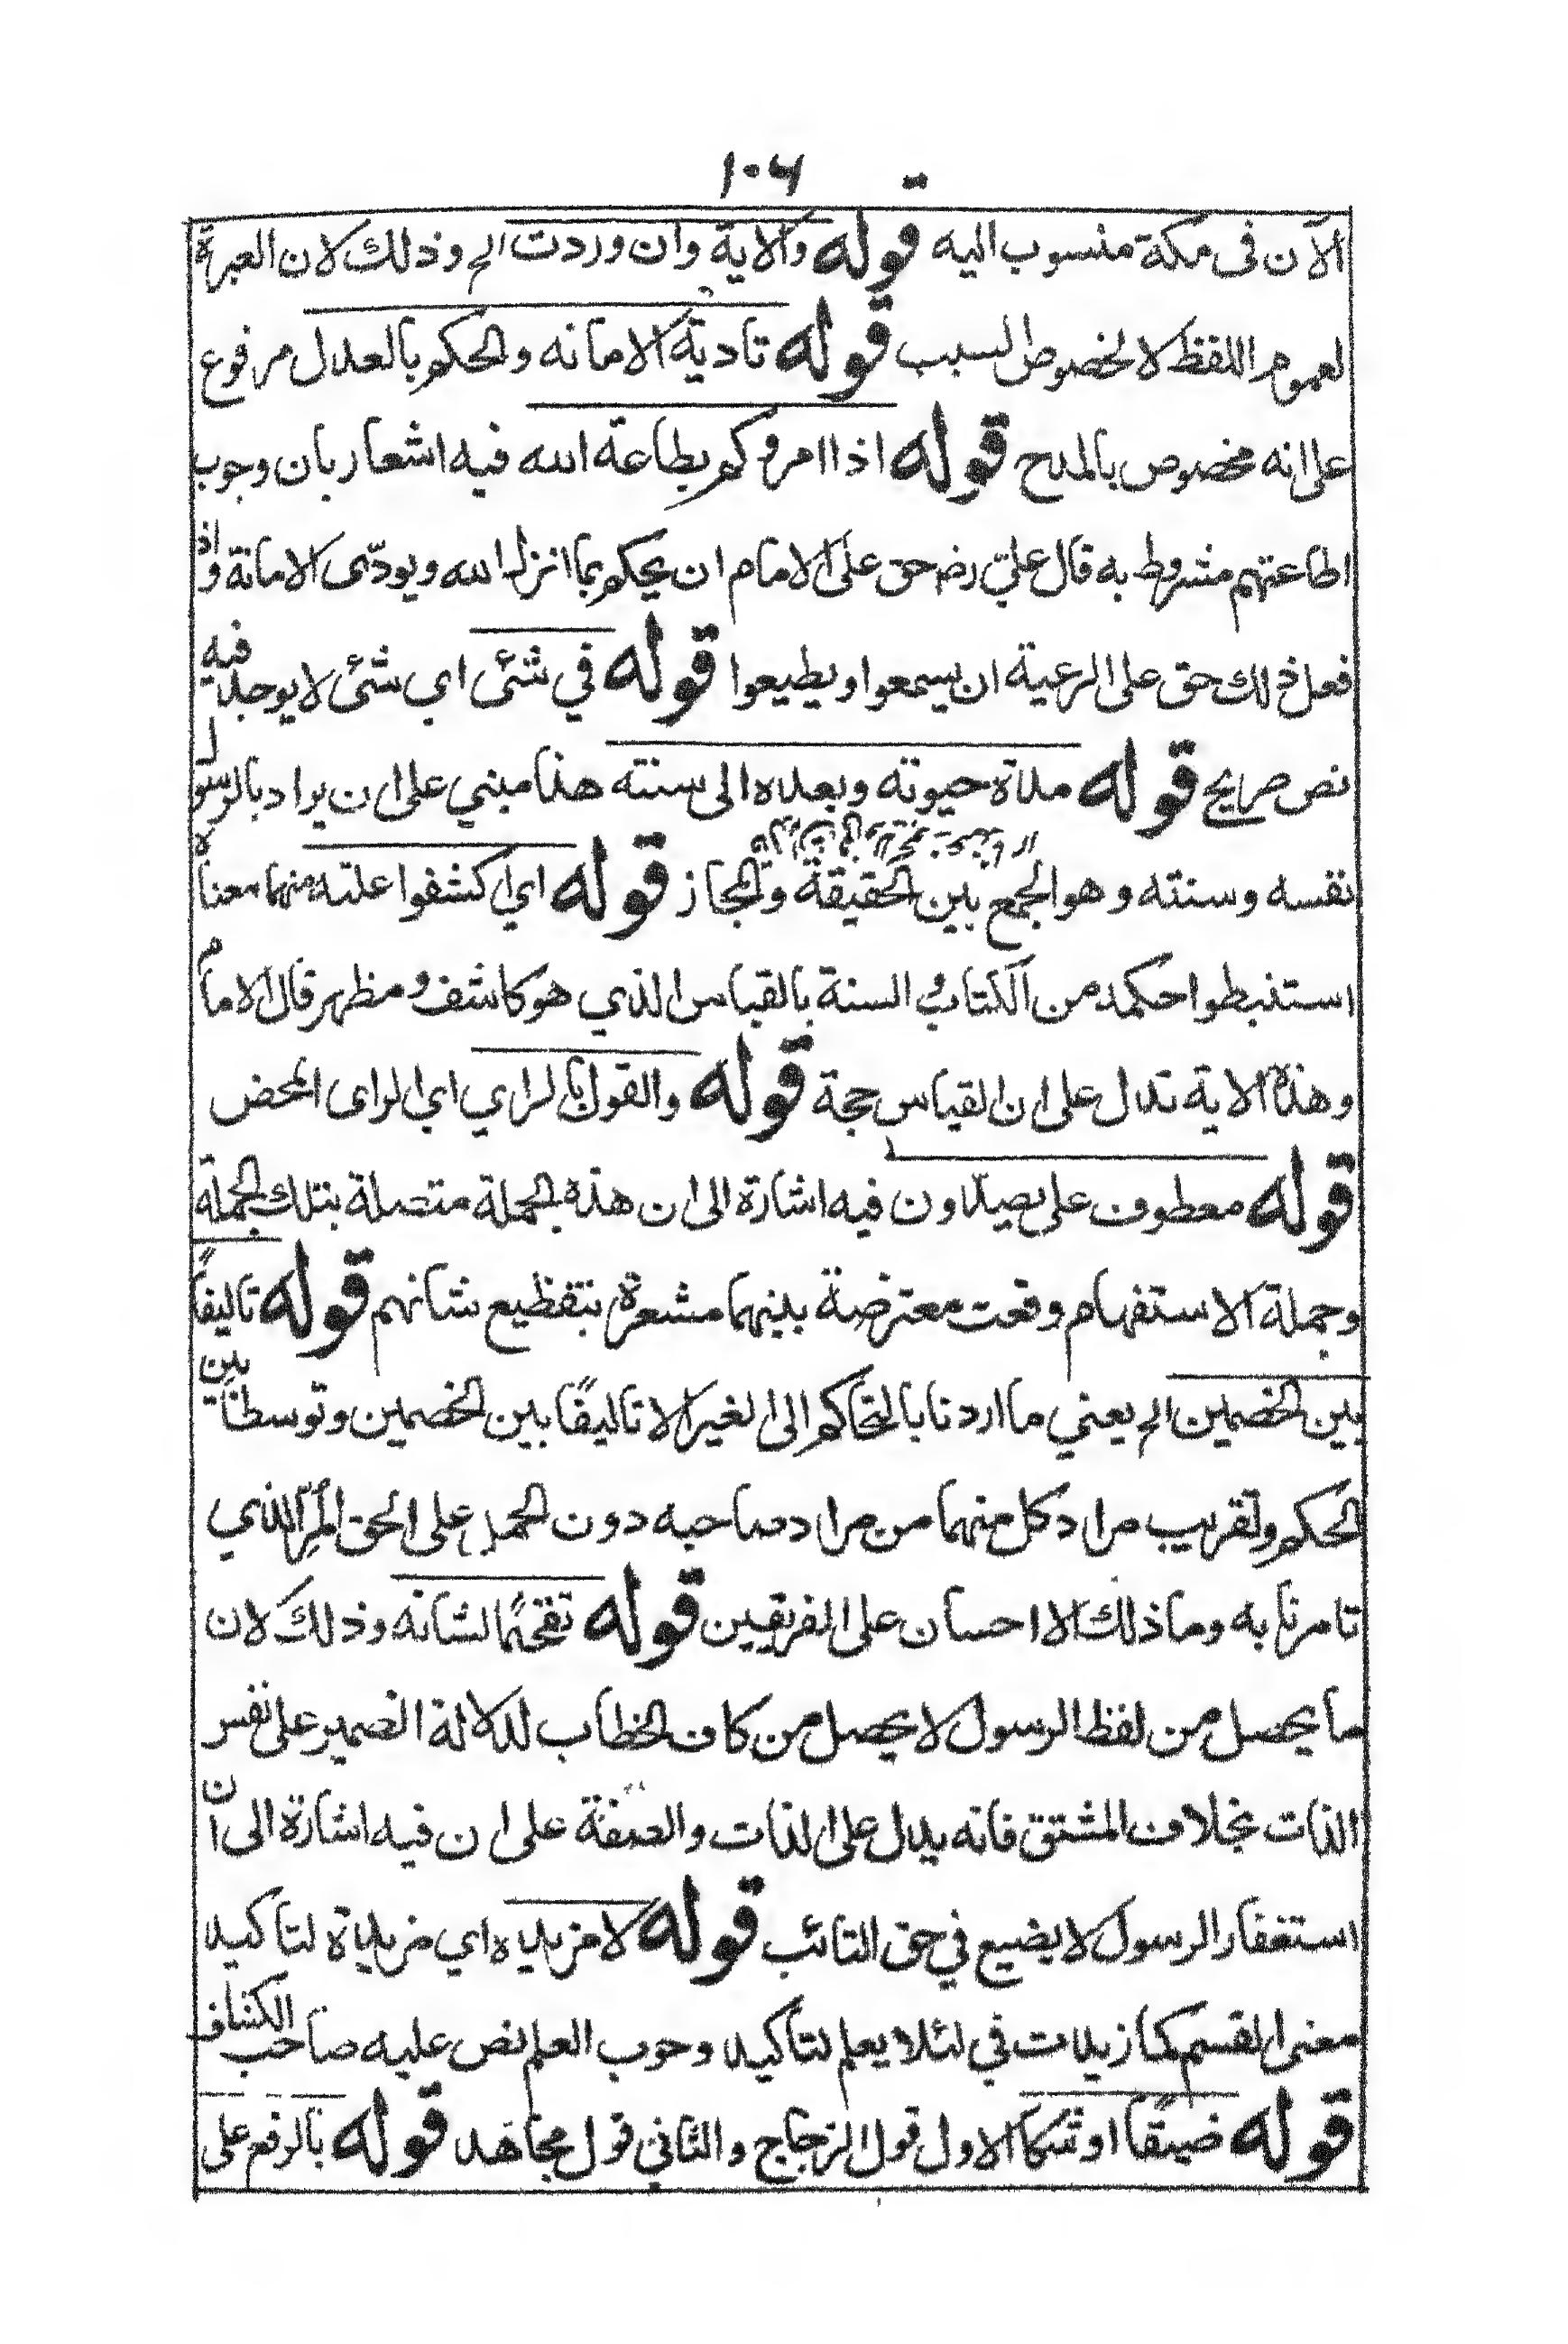 ١٠٦
الآن فى مكة منسوب اليه قوله والاية وان وردت الخ وذلك لان العبرة
لعموم اللفظ لا لخصوص السبب قوله تادية الامانه والحكم بالعدل مرفوع
على انه مخصوص بالمدح قوله اذا امروكم بطاعة الله فيه اشعار بان وجوب
اطاعتهم مشروط به قال عليّ رض حق على الامام ان يحكم بما انزل الله ويودّى الامانة واذ
فعل ذلك حق على الرعية ان يسمعوا ويطيعوا قوله في شئى اي شئ لا يوجد فيه
نص صريح قوله مدة حيوته وبعده الى سنته هذا مبني على ان يراد بالرسول
نفسه وسنته وهو الجمع بين الحقيقة والمجاز قوله اي اكشفوا علته منهما معناه
استنبطوا حكمه من الكتاب والسنة بالقياس الذي هو كاشف ومظهر قال الامام
وهذه الاية تدل على ان القياس حجة قوله والقول بالراي اي الراى المحض
قوله معطوف على يصدون فيه اشارة الى ان هذه الجملة متصلة بتلك الجملة
وجملة الاستفهام وقعت معترضة بينهما مشعرة بتفظيع شانهم قوله تاليفاً
بين الخصمين الخ يعني ما اردنا بالتحاكم الى الغير الا تاليفًا بين الخصمين وتوسطا بين
الحكم وتقريب مراد كل منهما من مراد صاحبه دون الحمل على الحق المُرّ الذي
تامرنا به وما ذلك الا احسان على الفريقين قوله تفخيمًا لشانه وذلك لان
ما يحصل من لفظ الرسول لا يحصل من كاف الخطاب لدلالة الضمير على نفس
الذات بخلاف المشتق فانه يدل على الذات والصفة على ان فيه اشارة الى ان
استغفار الرسول لا يضيع في حق التائب قوله لا مزيده اي مزيدة لتاكيد
معنى القسم كما زيدت في لئلا يعلم لتاكيد وجوب العلم نص عليه صاحب الكشاف
قوله ضيقًا او شكا الاول قول الزجاج والثاني قول مجاهد قوله بالرفع على